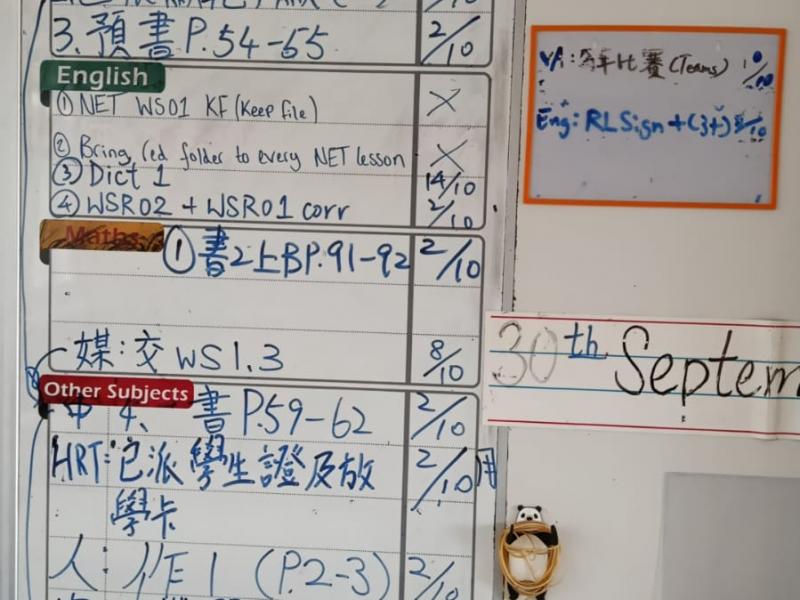 3. 預書 P.54-55 2/10
English
① NET WS01 KF (Keep file) X
② Bring red folder to every NET lesson X
③ Dict 1 14/10
④ WSR02 + WSR01 corr 2/10
Maths
① 書2上B P.91-92 2/10
媒: 交 WS1.3 8/10
Other Subjects
中 4、 書 P.59-62 2/10
HRT: 已派學生證及放 2/10
學卡
人: 作 1 (P.2-3) 2/10
VA: 比賽 (Teams)
Eng: RL Sign + (3+)
30th Septem